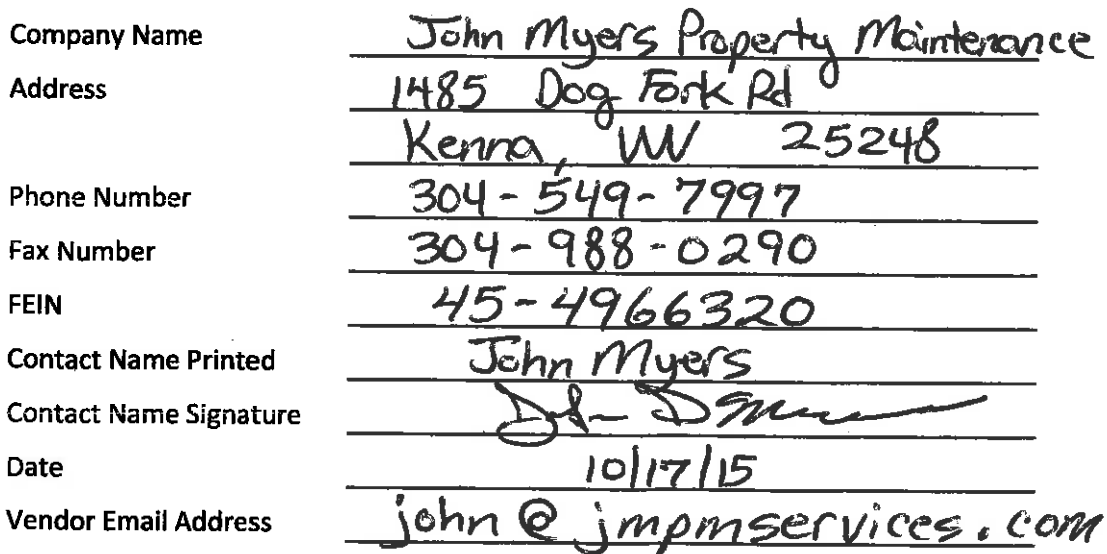 Company Name John Myers Property Maintenance
Address 1485 Dog Fork Rd
Kenna, WV 25248
Phone Number 304-549-7997
Fax Number 304-988-0290
FEIN 45-4966320
Contact Name Printed John Myers
Contact Name Signature
Date 10/17/15
Vendor Email Address john@jmpmservices.com